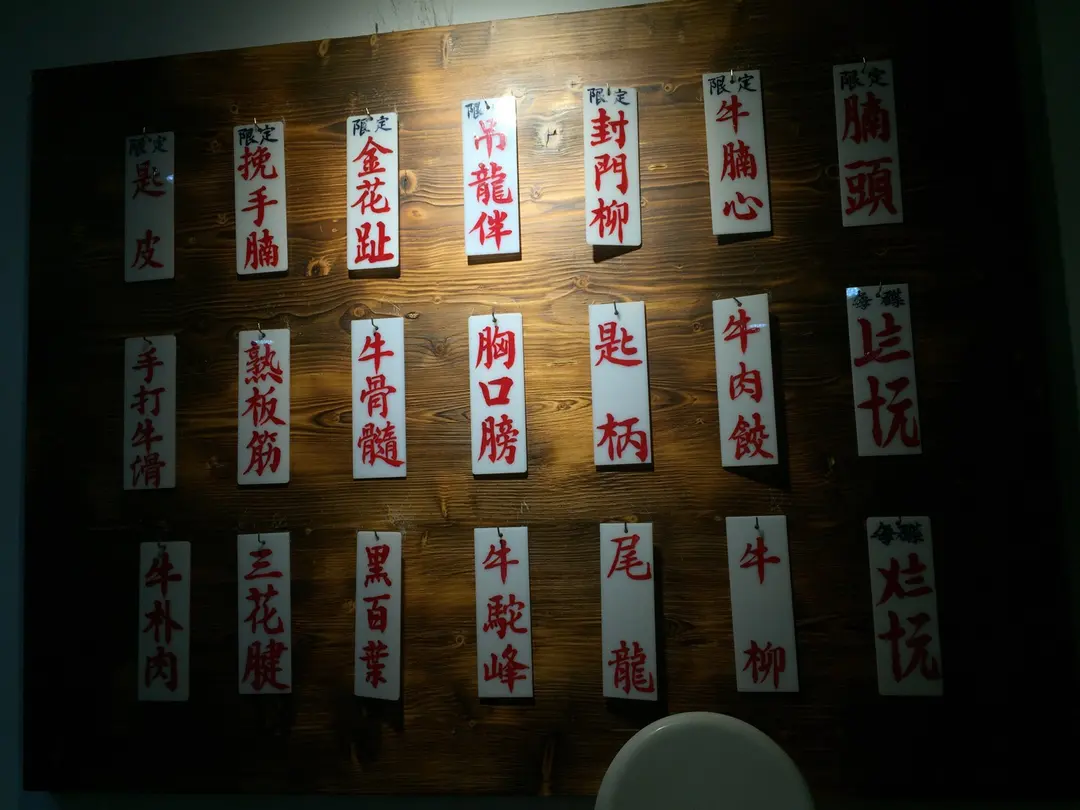 限定
匙皮
限定
挽手腩
限定
金花趾
限定
吊龍伴
限定
封門柳
限定
牛腩心
限定
腩頭
手打牛滑
熟板筋
牛骨髓
胸口膀
匙柄
牛肉餃
每碟
〦〨
十元
牛朴肉
三花腱
黑百葉
牛駝峰
尾龍
牛柳
每碟
〤〨
十元